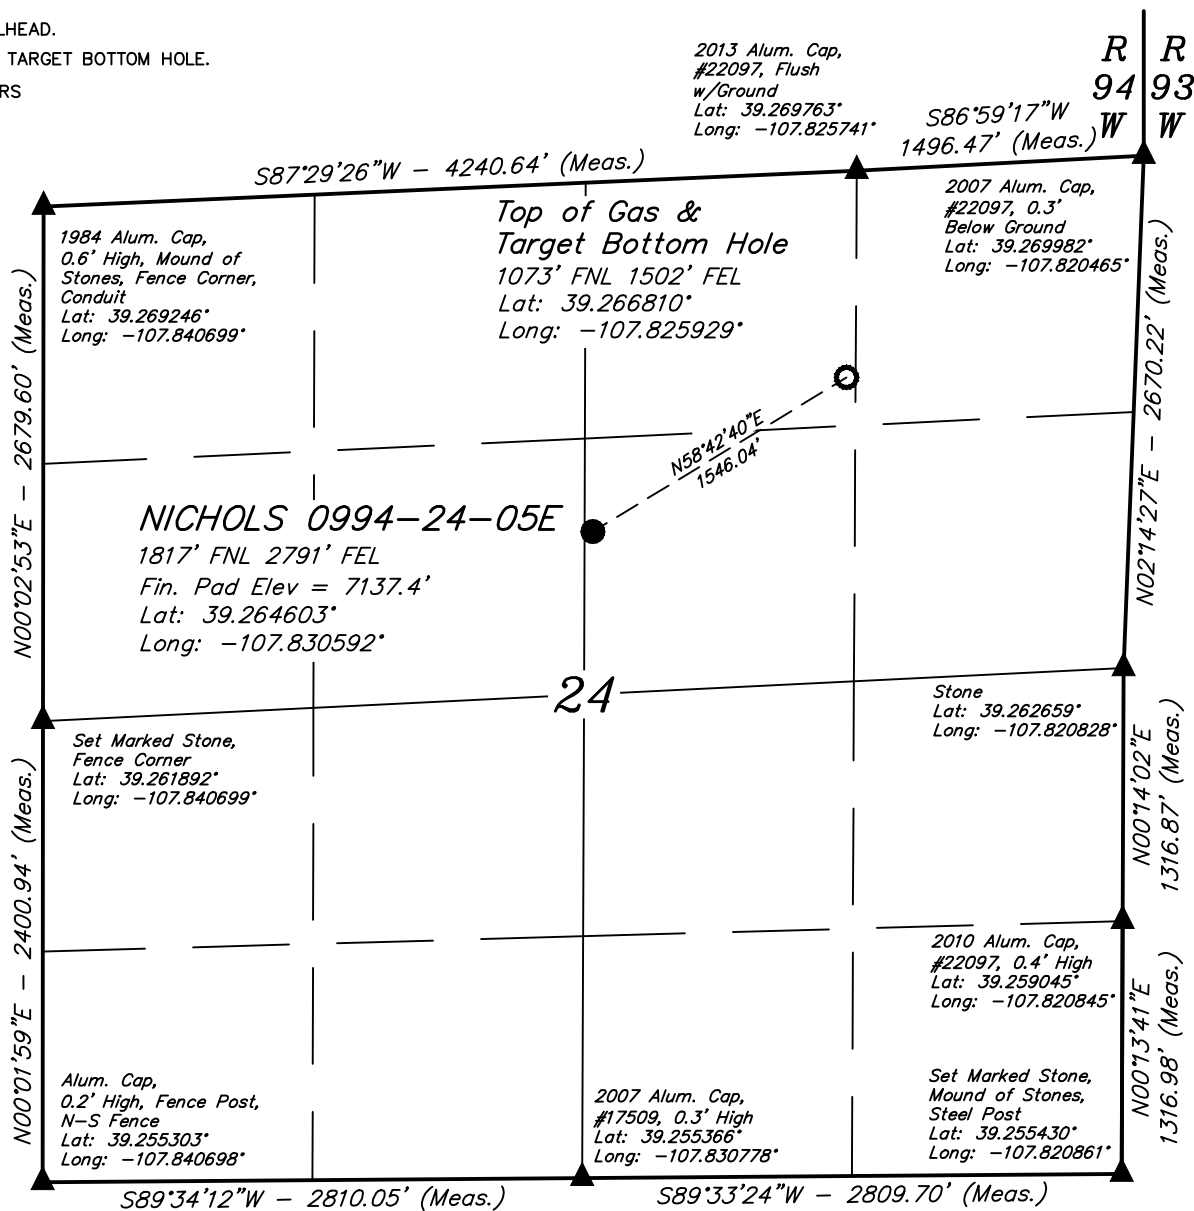 LHEAD.
TARGET BOTTOM HOLE.
RS
2013 Alum. Cap,
#22097, Flush
w/Ground
Lat: 39.269763°
Long: -107.825741°
R R
94 93
W W
S86°59'17"W
1496.47' (Meas.)
S87°29'26"W - 4240.64' (Meas.)
2007 Alum. Cap,
#22097, 0.3'
Below Ground
Lat: 39.269982°
Long: -107.820465°
Top of Gas &
Target Bottom Hole
1073' FNL 1502' FEL
Lat: 39.266810°
Long: -107.825929°
1984 Alum. Cap,
0.6' High, Mound of
Stones, Fence Corner,
Conduit
Lat: 39.269246°
Long: -107.840699°
N00°02'53"E - 2679.60' (Meas.)
N02°14'27"E - 2670.22' (Meas.)
N58°42'40"E
1546.04'
NICHOLS 0994-24-05E
1817' FNL 2791' FEL
Fin. Pad Elev = 7137.4'
Lat: 39.264603°
Long: -107.830592°
24
Stone
Lat: 39.262659°
Long: -107.820828°
Set Marked Stone,
Fence Corner
Lat: 39.261892°
Long: -107.840699°
N00°01'59"E - 2400.94' (Meas.)
N00°14'02"E
1316.87' (Meas.)
2010 Alum. Cap,
#22097, 0.4' High
Lat: 39.259045°
Long: -107.820845°
N00°13'41"E
1316.98' (Meas.)
Alum. Cap,
0.2' High, Fence Post,
N-S Fence
Lat: 39.255303°
Long: -107.840698°
2007 Alum. Cap,
#17509, 0.3' High
Lat: 39.255366°
Long: -107.830778°
Set Marked Stone,
Mound of Stones,
Steel Post
Lat: 39.255430°
Long: -107.820861°
S89°34'12"W - 2810.05' (Meas.)
S89°33'24"W - 2809.70' (Meas.)